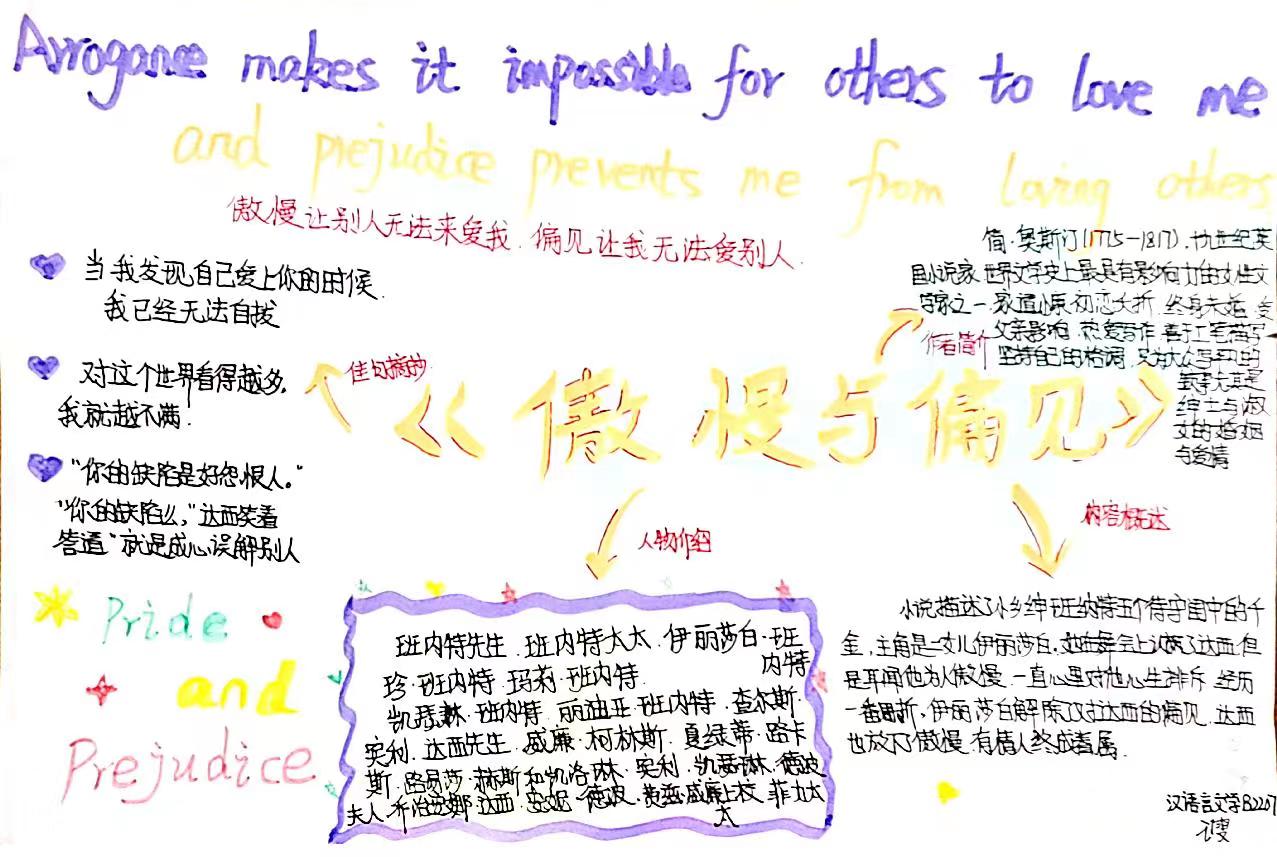 Arrogance makes it impossible for others to love me
and prejudice prevents me from loving others
傲慢让别人无法来爱我.偏见让我无法爱别人.
当我发现自己爱上你的时候.
我已经无法自拔
对这个世界看得越多.
我就越不满.
"你的缺陷是好怨恨人."
"你的缺陷么,"达西笑着
答道"就是成心误解别人
佳句摘抄
简·奥斯汀(1775-1817).
国小说家.世界文学史上最具有影响力的女性文
学家之一.家道 初恋夭折.终身未婚.受
父亲影响.热爱写作.善于工笔描写
坚持自己的格调.
绅士与淑
女的婚姻
与爱情
作者简介
《傲慢与偏见》
人物介绍
内容概述
班内特先生.班内特太太.伊丽莎白·班
内特
珍·班内特.玛莉·班内特.
凯瑟琳·班内特.丽迪亚·班内特.查尔斯·
宾利.达西先生.威廉·柯林斯.夏绿蒂·路卡
斯.路易莎·赫斯和凯洛琳·宾利.凯瑟琳·德波
夫人.乔治安娜·达西.安妮·德波.费兹威廉上校.菲力太
太
小说描述了小乡绅班纳特五个待字闺中的千
金,主角是二女儿伊丽莎白.她在舞会上认识了达西.但
是耳闻他为人傲慢.一直心里对他心生排斥.经历
一番周折,伊丽莎白解除了对达西的偏见.达西
也放下傲慢.有情人终成眷属.
Pride
and
Prejudice
汉语言文学B2207